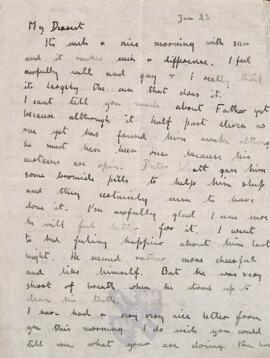 Jan 23
My Dearest
Its such a nice morning with sun
and it makes such a difference. I feel
awfully well and gay & I really think
its largely the sun that does it.
I cant tell you much about Father yet
because although it half past eleven no
one yet has found him awake although
he must have been once because his
curtains are open. att gave him
some bromide pills to help him sleep
and they certainly seem to have
done it. I'm awfully glad I am sure
he will feel better for it. I went
to bed feeling happier about him last
night. He seemed rather more cheerful
and like himself. But he was very
short of breath when he stood up to
clean his teeth.
I have had a very very nice letter from
you this morning. I do wish you would
tell me what your are doing. You